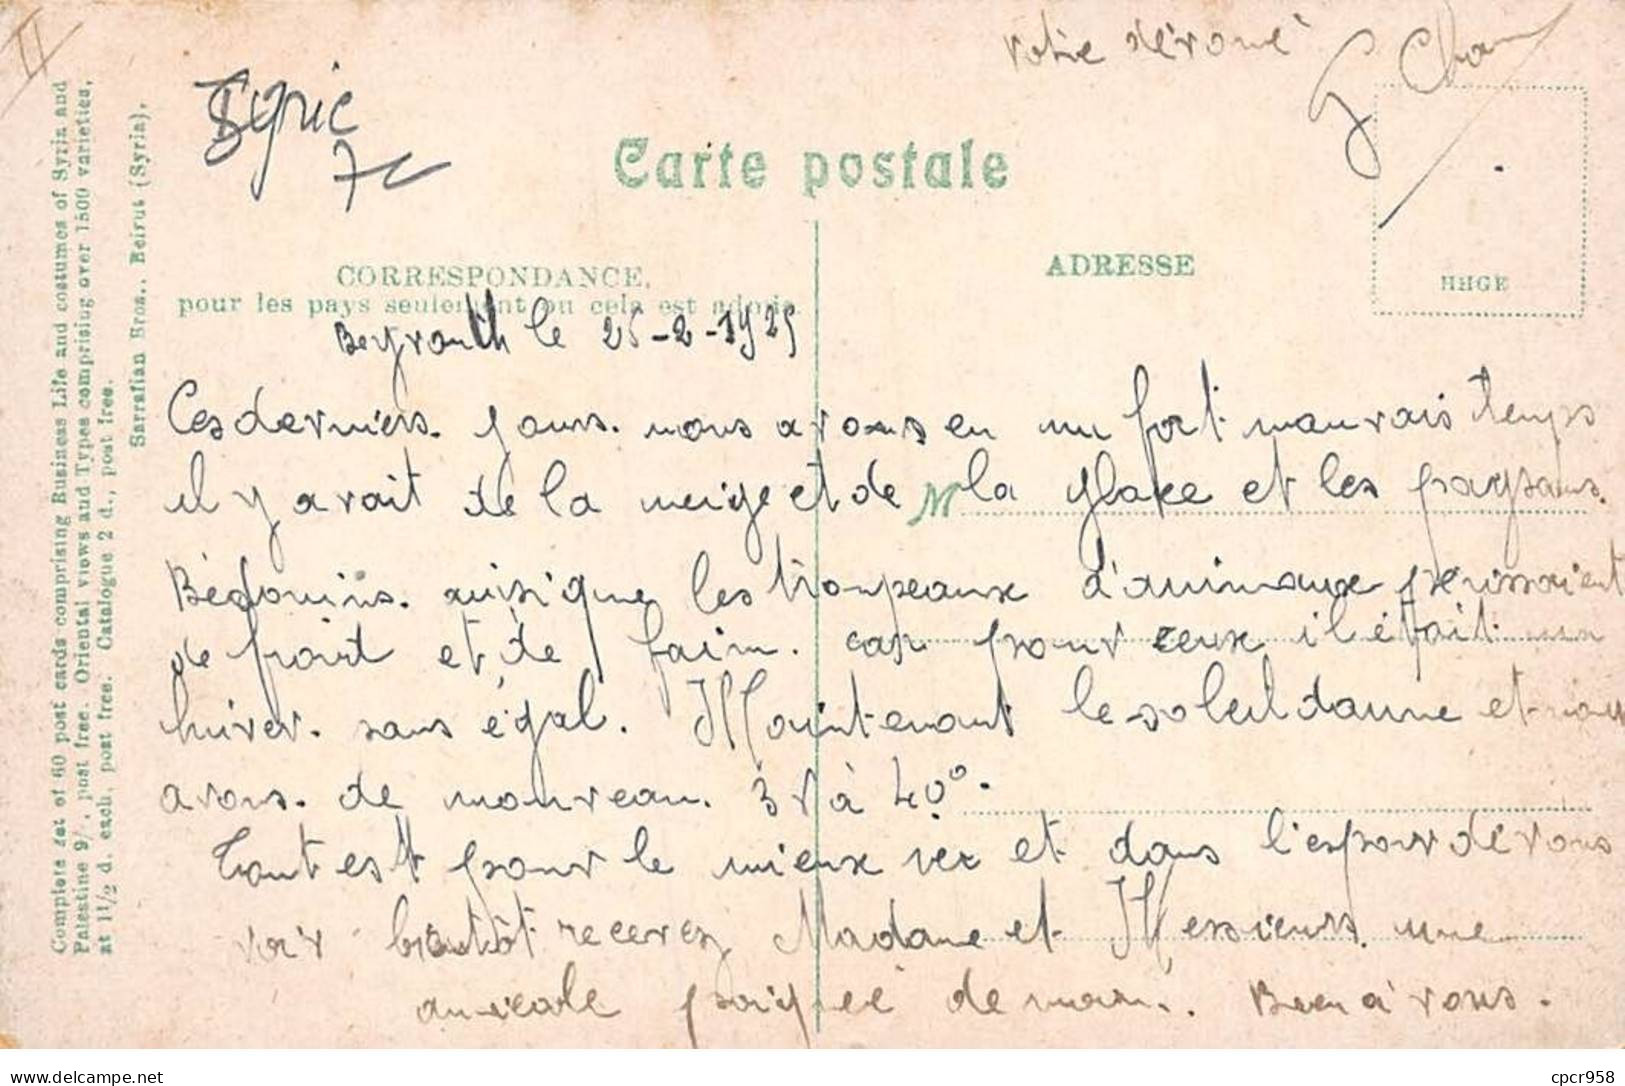 II
Syrie
7
votre dévoué
Complete set of 60 post cards comprising Business Life and costumes of Syria and
Palestine 9/, post free. Oriental views aud Types comprising over 1500 varieties,
at 1 1/2 d. each, post free. Catalogue 2 d., post free.
Sarrafian Bros., Beirut (Syria).
Carte postale
CORRESPONDANCE.
pour les pays seulement ou cela est admis.
ADRESSE
Beyrouth le 25-2-1925
Ces derniers. jours. nous avons eu un fort mauvais temps
il y avait de la neige et de M la glace et les paysans.
Bédouins. ainsi que les troupeaux d'animaux périssaient
de froid et de faim. car pour ceux il était un
hiver. sans égal. Maintenant le soleil donne et nous
avons. de nouveau. 35 à 40°.
Tout est pour le mieux et dans l'espoir de vous
voir bientôt recevez Madame et Messieurs. une
amicale poignée de main. Bien à vous.
cpcr958